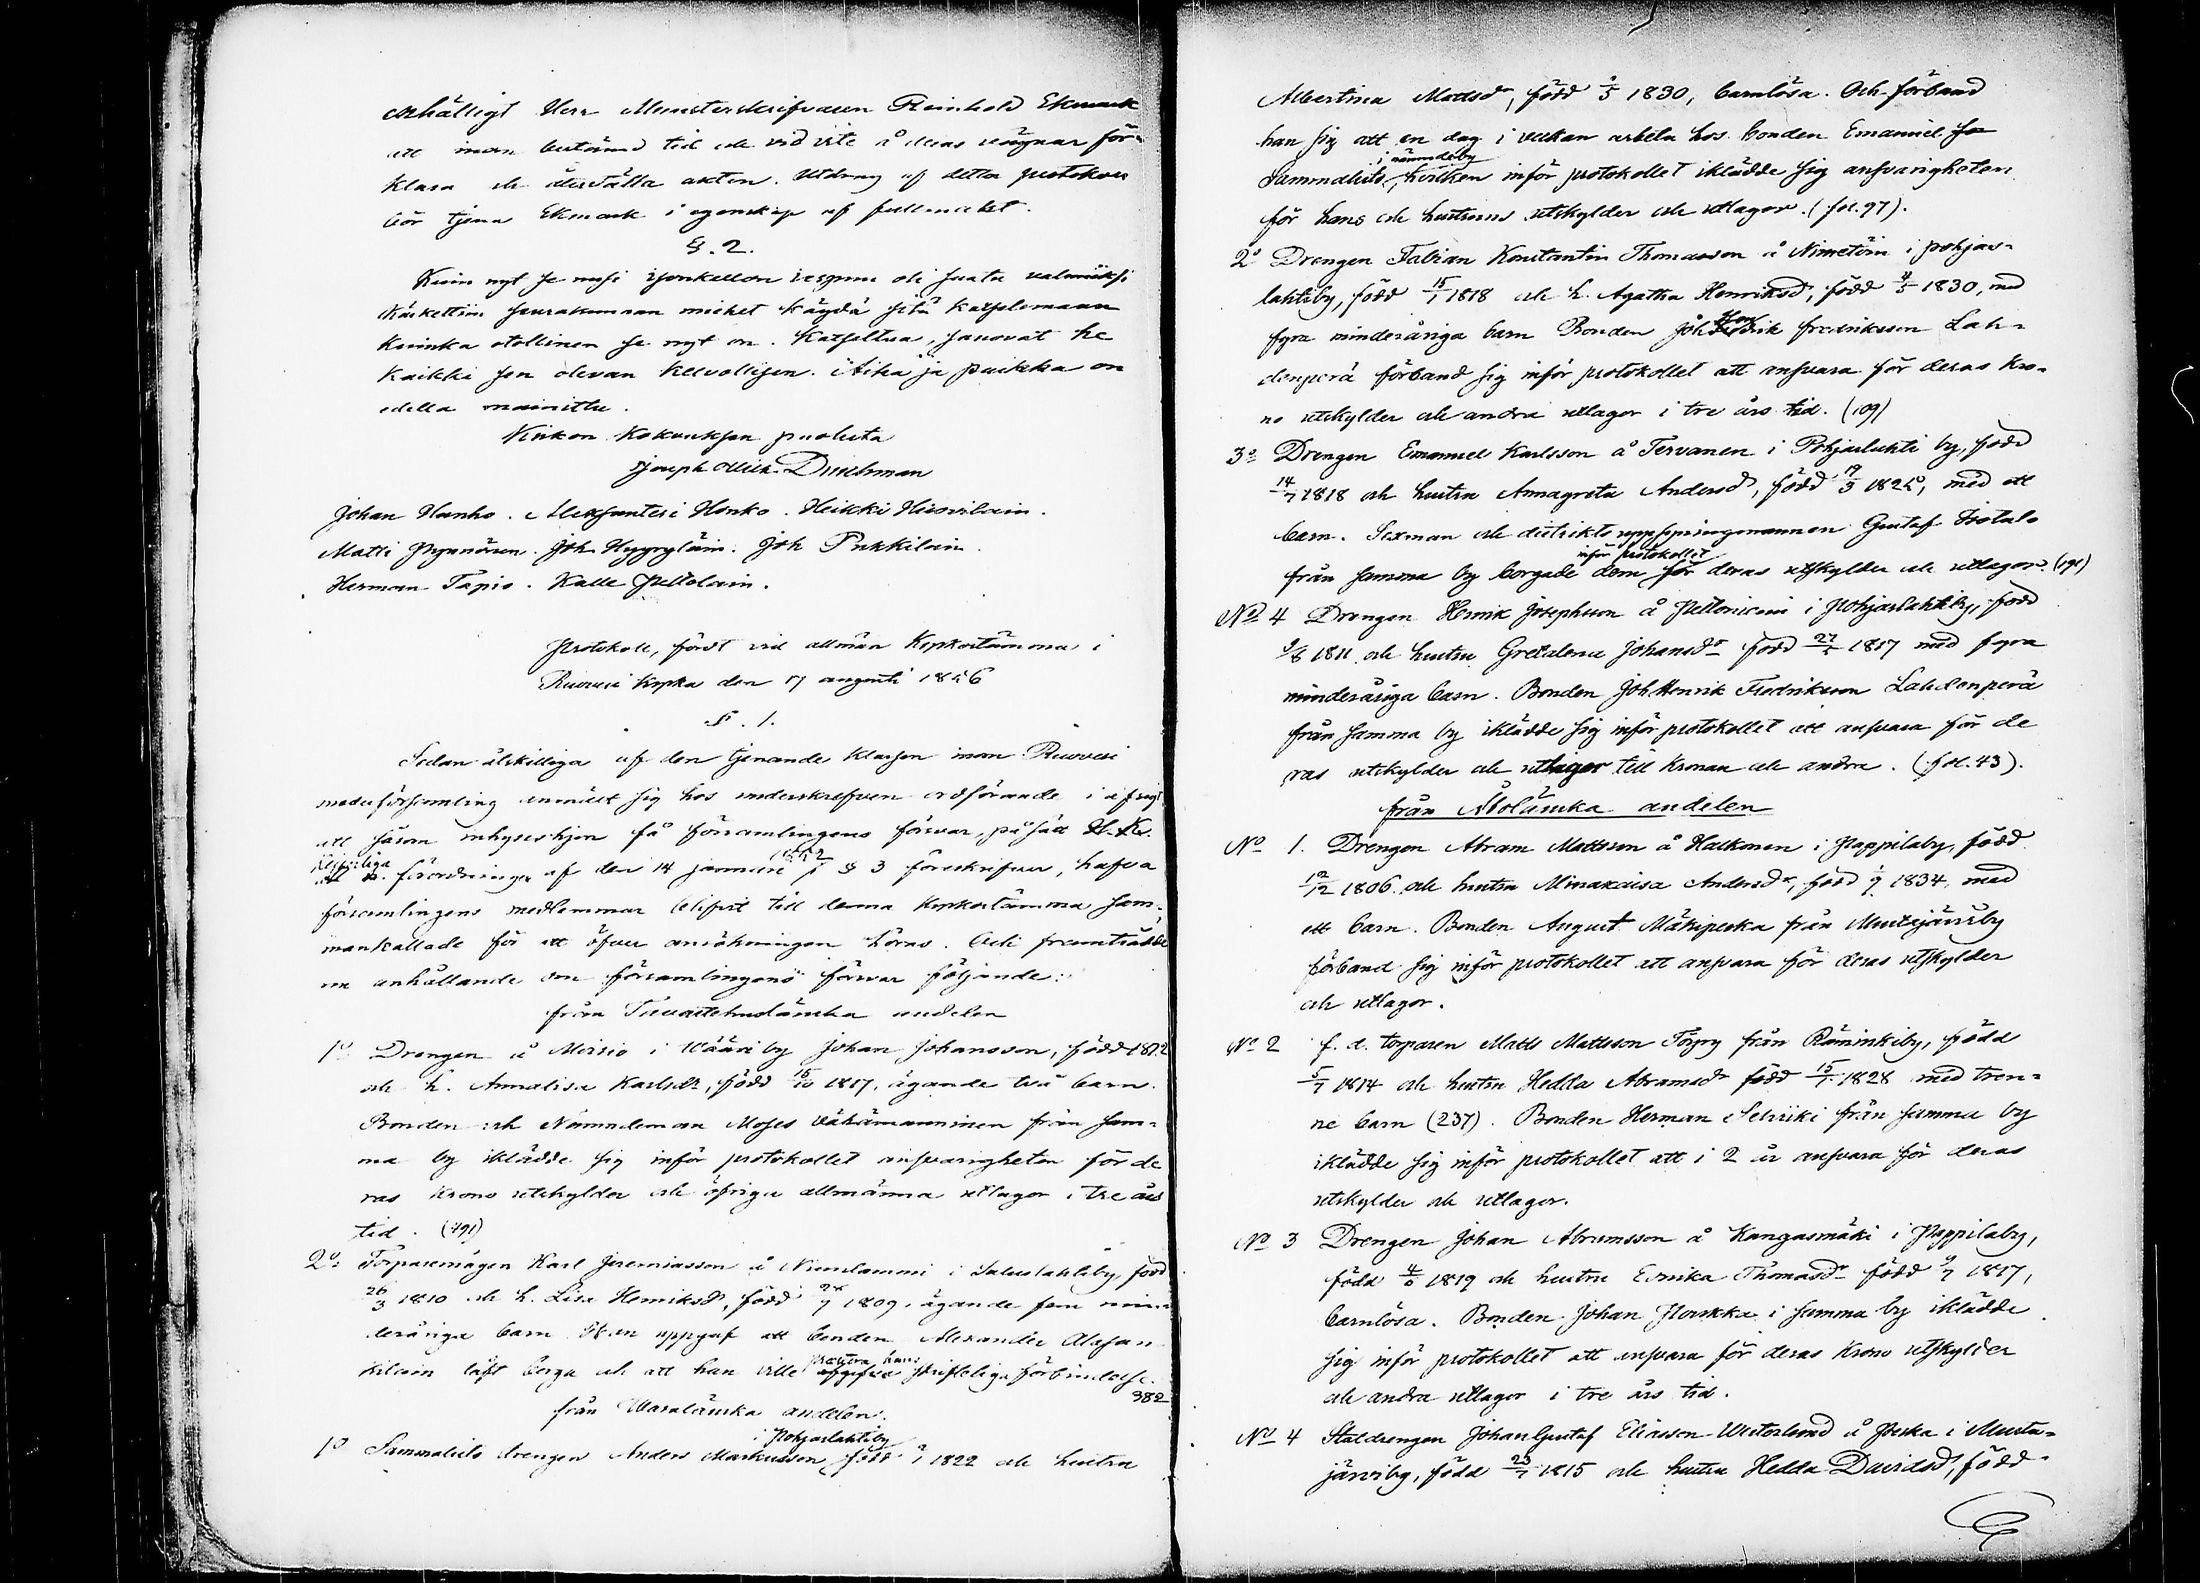 Herr Munsterskrifvaren Reinhold Ekmark
att inom bestämd tid och vid vite å deras vägnar för-
klara och återställa akten. Utdrag af detta protokoll
bör tjena Ekmark i egenskap af fullmakt.
§. 2.
Kuin nyt se uusi oli saatu valmiiksi
seurakunnan miehet käydä sitä katselemaan
kuinka otollinen se nyt on. Katseltua, sanovat he
kaikki sen olevan kelvollisen. Aika ja paikka on
edellä mainittu.
Kirkon Kokouksen puolesta
Joseph Mich. Durchman
Johan Hanho. Aleksanteri Honko. Heikki Hirvilain.
Matti Pynnönen. Joh. Joh Pukkilain.
Herman Tapio. Kalle Peltolain.
Protokoll, fördt vid allmän Kyrkostämma i
Ruovesi Kyrka den 17 augusti 1856
§. 1.
Sedan åtskilliga af den tjenande klassen inom Ruovesi
moderförsamling anmält sig hos underskrifven ordförande i afsigt
att såsom inhyseshjon få församlingens försvar, på sätt
Kejserliga förordningen af den 14 januari 1852 § 3 föreskrifver, hafva
församlingens medlemmar blifvit till denna Kyrkostämma sam-
mankallade för att öfver ansökningen höras. Och framträdde
nu anhållande om församlingens försvar följande:
från Tavastehuslänska andelen
1o Drengen å Moisio i Wääri by Johan Johansson, född 1812
och h. Annalisa Karlsdr, född 15/10 1817, ägande två barn.
Bonden och Nämndeman Moses Vähämanninen från sam-
ma by iklädde sig inför protokollet ansvarigheten för de
ras Krono utskylder och öfriga allmänna utlagor i tre års
tid. (491)
2o Torparemågen Karl Jeremiasson å Niemilammi i by, född
26/3 1810 och h. Lisa Henriksdr, född 24/9 1809, ägande fem min-
deråriga barn. Han uppgaf att bonden Alexander
låft borga och att han ville hans skriftliga förbindelse.
382
från Wasalänska andelen.
1o Sammalisto drengen Anders Markusson i Pohjaslahti by född 1822 och hustru
Albertina Mattsdr, född 1830, barnlösa. Och förband
han sig att en dag i veckan arbeta hos bonden Emanuel
Sammalisto i nämnde by, hvilken inför protokollet iklädde sig ansvarigheten
för hans och hustruns utskylder och utlagor. (fol. 97).
2o Drengen Fabian Konstantin Thomasson å Nimetöin i pohjas-
lahtiby, född 15/1 1818 och h. Agatha Henriksdr, född 4/5 1830, med
fyra minderåriga barn. Bonden Joh Henrik Fredriksson Lah-
denperä förband sig inför protokollet att ansvara för deras Kro-
no utskylder och andra utlagor i tre års tid. (109)
3o Drengen Emanuel Karlsson å Tervanen i Pohjaslahti by, född
14/7 1818 och hustru Annagreta Andersdr, född 1825, med ett
barn. Sexman och distrikts uppsyningsmannen Gustaf Isotalo
från samma by borgade inför protokollet dem för deras utskylder och utlagor. (191)
No 4 Drengen Henrik Josephsson å Peltoniemi i Pohjaslahtiby, född
1811 och hustru Gretalena Johansdr född 1817 med fyra
minderåriga barn. Bonden Joh Henrik Fredriksson Lahdenperä
från samma by iklädde sig inför protokollet att ansvara för de
ras utskylder och utlagor till Kronan och andra. (fol. 43).
från Åbolänska andelen
No 1. Drengen Abram Mattsson å Halkonen i Pappilaby, född
1806 och hustru Minakaisa Andersdr, född 1834, med
ett barn. Bonden August Mäkipeska från Mustajärviby
förband sig inför protokollet att ansvara för deras utskylder
och utlagor.
No 2 f. d. torparen Matts Mattsson Törpy från Räminkiby, född
5/7 1814 och hustru Hedda Abramsdr född 15/7 1828 med tren-
ne barn (237). Bonden Herman Selviiki från samma by
iklädde sig inför protokollet att i 2 år ansvara för deras
utskylder och utlagor.
No 3 Drengen Johan Abramsson å Kangasmäki i Pappilaby,
född 1819 och hustru Evrika Thomasdr född 1817,
barnlösa. Bonden Johan i samma by iklädde
sig inför protokollet att ansvara för deras Krono utskylder
och andra utlagor i tre års tid.
No 4 Staldrengen Johan Gustaf Eliasson Westerlund å Peska i Musta-
järviby, född 23/7 1815 och hustru Hedda Davidsdr, född